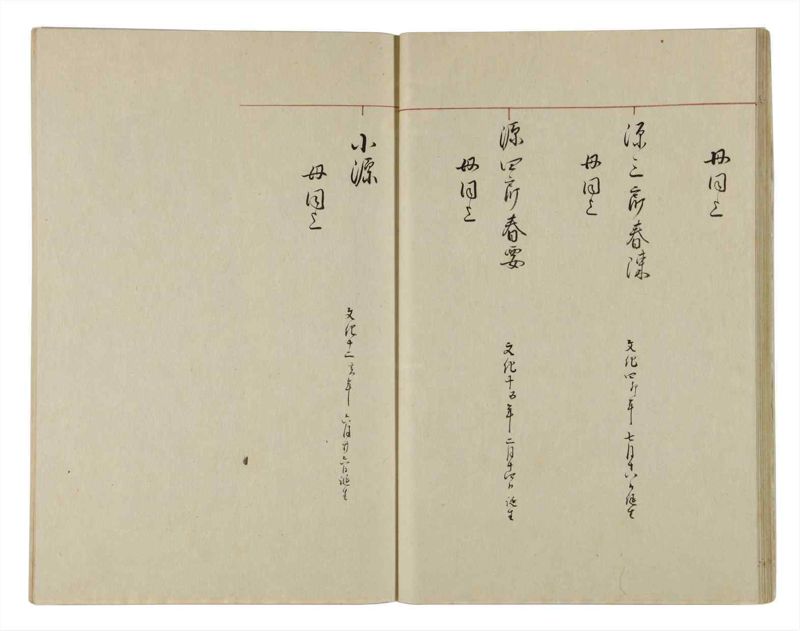 母同上
源三郎春漣
母同上
文化四卯年七月十八日誕生
源四郎春要
母同上
文化十五年二月十四日誕生
小源
母同上
文化十二亥年六月廿六日誕生